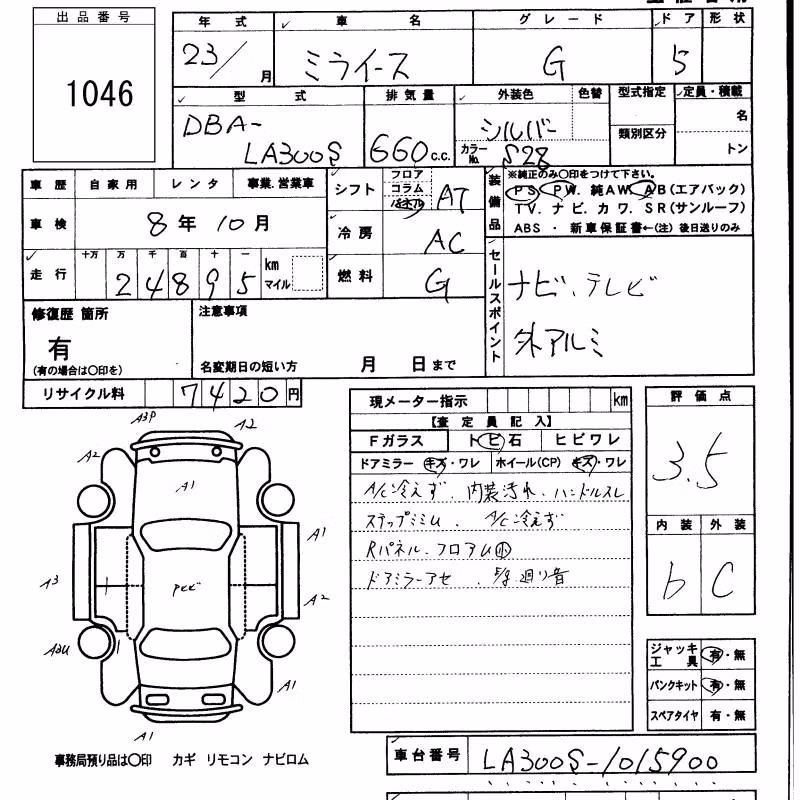 出品番号
1046
年式 車名 グレード ドア 形状
23/ 月 ミライース G 5
型式 排気量 外装色 色替 型式指定 定員・積載
DBA-
LA300S 660 c.c. シルバー 名
カラーNo. S28 類別区分 トン
車歴 自家用 レンタ 事業.営業車
車検 8年 10月
走行 十万 万 千 百 十 一
24895 km マイル
シフト フロア コラム AT
冷房 AC
燃料 G
装備品
※純正のみ〇印をつけて下さい。
PS. PW. 純AW. AB(エアバック)
TV. ナビ. カワ. SR(サンルーフ)
ABS ・ 新車保証書←(注)後日送りのみ
セールスポイント
ナビ、テレビ
外アルミ
修復歴 箇所
有
(有の場合は〇印を)
注意事項
名変期日の短い方 月 日まで
リサイクル料 7420円
現メーター指示 km
【査定員記入】
Fガラス トビ石 ヒビワレ
ドアミラー キズ・ワレ ホイール(CP) キズ・ワレ
A/C冷えず、内装汚れ、ハンドルスレ
ステップミミム、A/C冷えず
Rパネル、フロアム小
ドアミラーアセ、
廻り音
評価点
3.5
内装 外装
b C
ジャッキ工具 有・無
パンクキット 有・無
スペアタイヤ 有・無
A3P
A2
A2
A1
A1
A3
A2
A2U
A1
A1
事務局預り品は〇印 カギ リモコン ナビロム
車台番号 LA300S-1015900